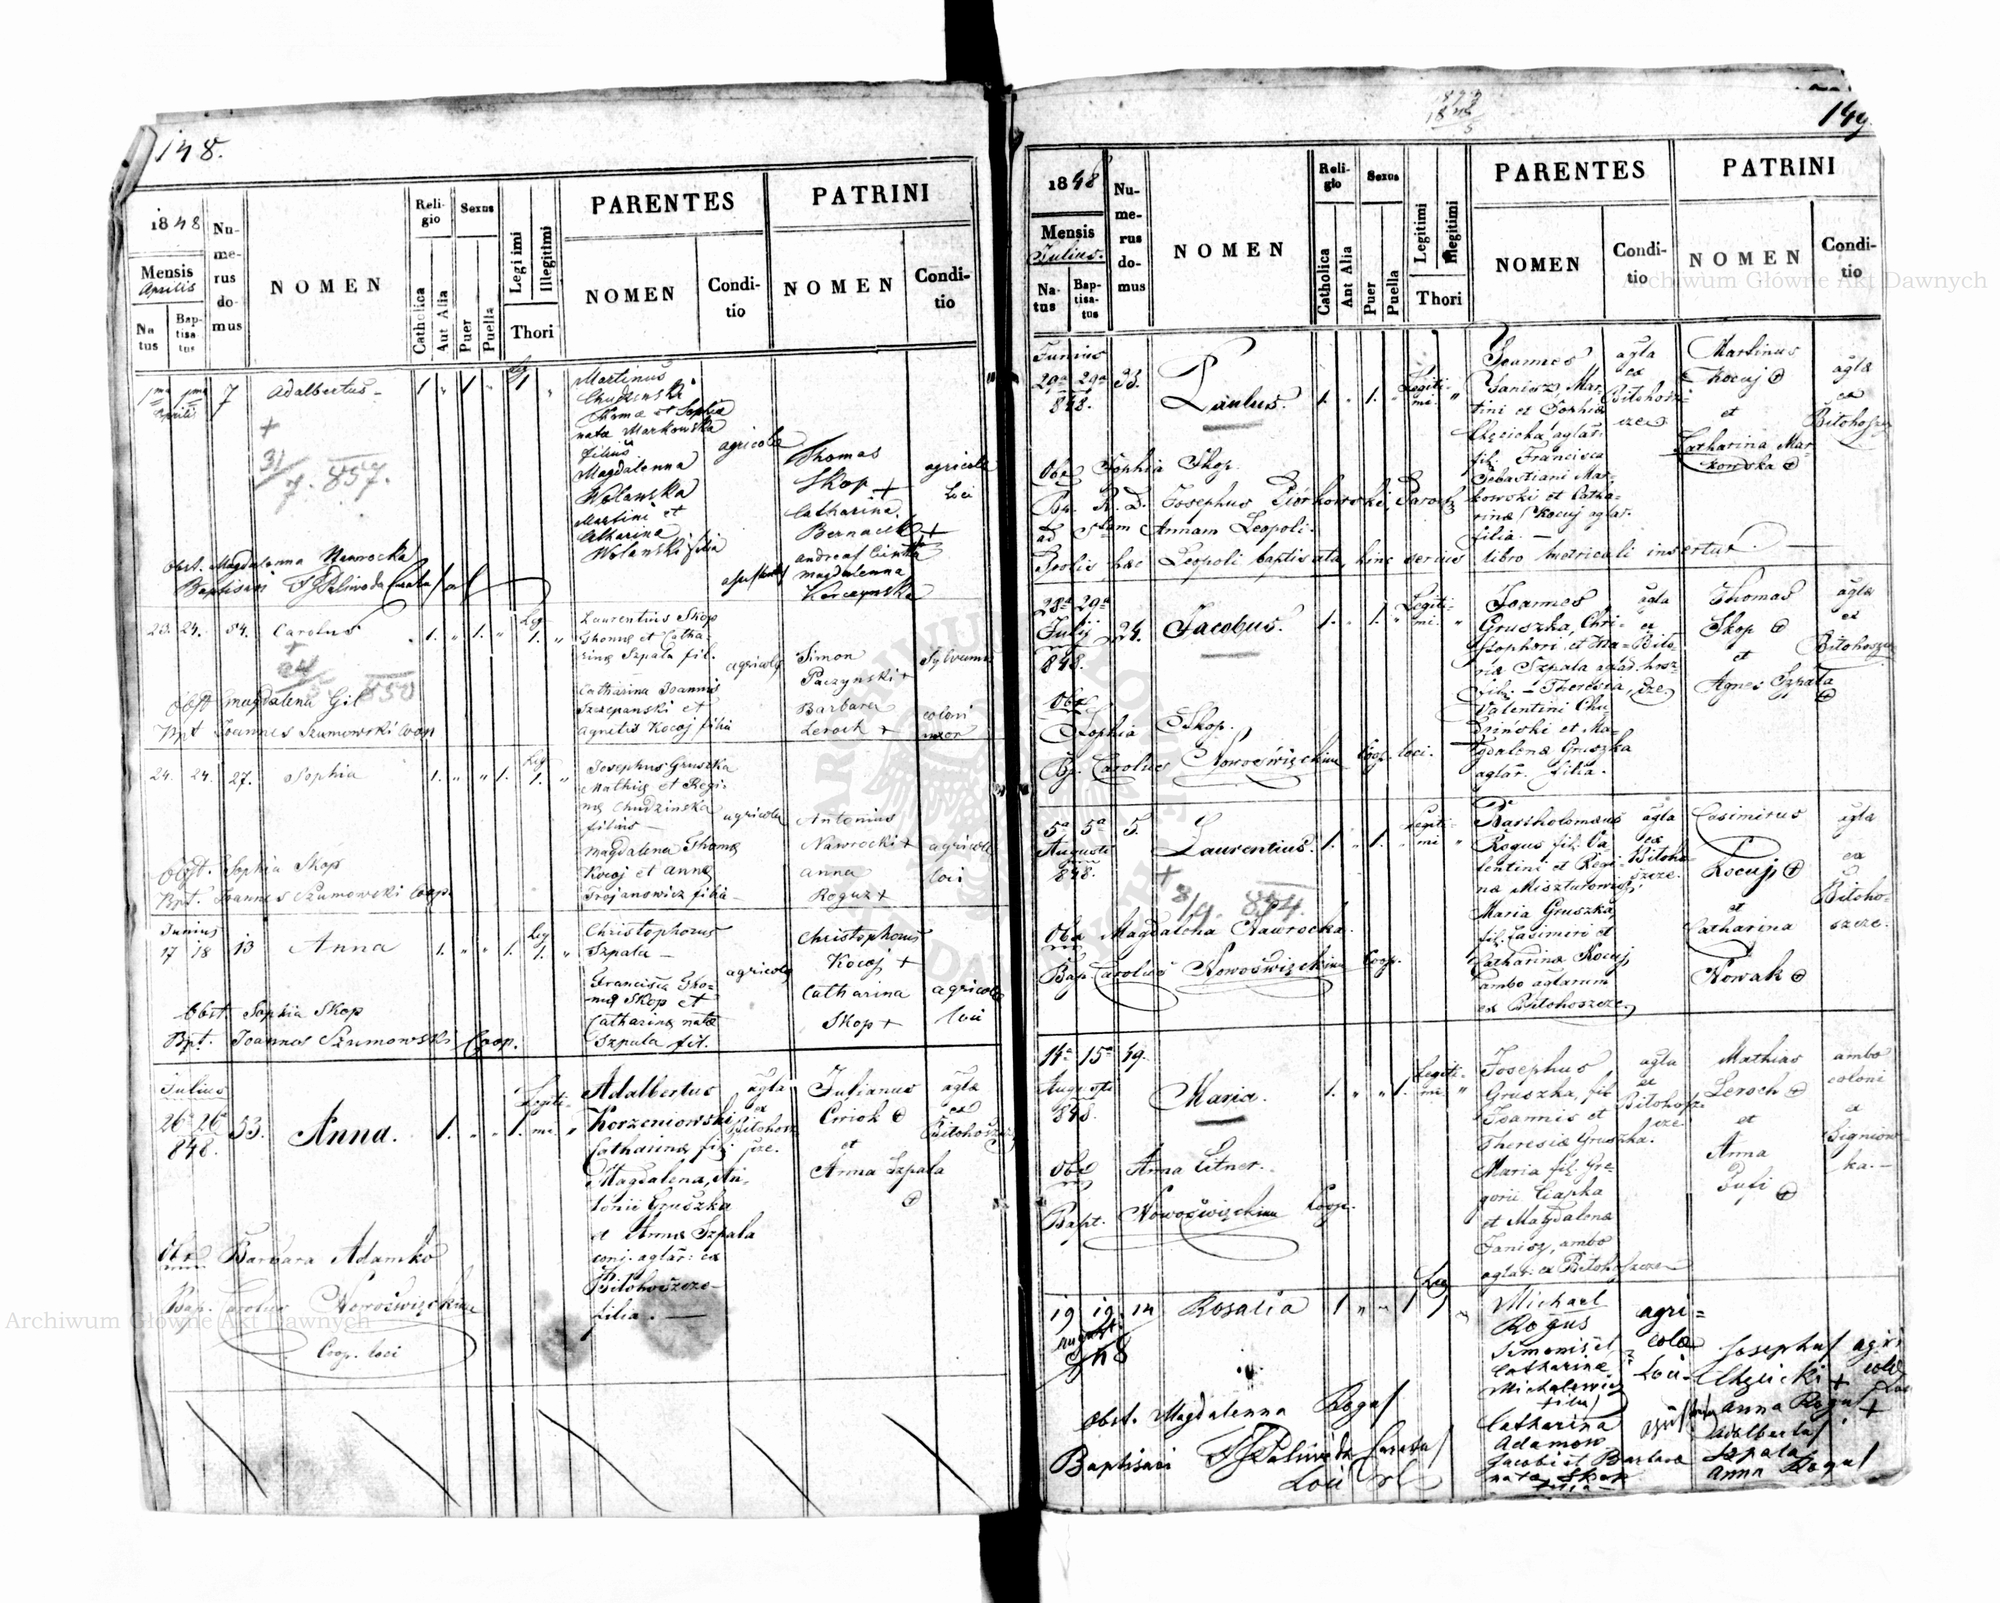 148.
1848
Mensis
Aprilis
Na
tus
Bap-
tisa
tus
Nu-
me-
rus
do-
mus
NOMEN
Reli-
gio
Catholica
Aut Alia
Sexus
Puer
Puella
Legi imi
Illegitimi
Thori
PARENTES
NOMEN
Condi-
tio
PATRINI
NOMEN
Condi-
tio
1ma 1ma 7 Adalbertus 1 " 1 " 1 "
Aprilis
+
31/7. 857.
Martinus
Thomæ et Sophia
nata Markowska
filius
Magdalenna
Wolanska
Martini et
Catharina
Wolanski filia
agricola
Thomas
Skop +
Catharina
Bernacek +
Andreas
Magdalenna
Korczynska
agricola
loci
Obst. Magdalenna Nawrocka
Baptisavi Paliwoda
23. 24. 54. Carolus 1. " 1. " Leg 1. "
+
850
Laurentius Skop
Thomæ et Catha
rinæ Szpala fil.
Catharina Joannis
Szczepanski et
Agnetis Kocoj filia
agricola
Simon
Paczynski +
Barbara
Leroch +
Sylvanus
coloni
uxor
Obst Magdalena Gil
Bpt Joannes Szumowski Coop
24. 24. 27. Sophia 1. " " 1. Leg 1. "
Josephus Gruszka
Mathiæ et Regi-
næ Chudzinska
filius —
Magdalena Thomæ
Kocoj et Annæ
Trojanowicz filia —
agricola
Antonius
Nawrocki +
Anna
Roguz +
agricola
loci
Obst. Sophia Skop
Bpt. Joannes Szumowski Coop.
Junius
17 18 13 Anna 1. " " 1. Leg 1. "
Christophorus
Szpala —
Francisca Tho-
mæ Skop et
Catharinæ natæ
Szpala fil.
agricola
Christophorus
Kocoj +
Catharina
Skop +
agricola
loci
Obst. Sophia Skop
Bpt. Joannes Szumowski Coop.
Julius
26ta 26ta 53. Anna. 1. " " 1. Legiti-
mi "
848.
Adalbertus
Korzeniowski
Catharinæ fil:
Magdalena, An-
tonii Gruszka
et Annæ Szpala
conj. aglar: ex
Bitohoszcze
filia. —
agla
ex
Bitohosz
cze.
Julianus
et
Anna Szpala
agla
ex
Obx Barbara Adamko
Bap. Carolus Nowoświęckinu
Coop. loci
149.
1848
Mensis
Julius.
Na-
tus
Bap-
tisa-
tus
Nu-
me-
rus
do-
mus
NOMEN
Reli-
gio
Catholica
Aut Alia
Sexus
Puer
Puella
Legitimi
Illegitimi
Thori
PARENTES
NOMEN
Condi-
tio
PATRINI
NOMEN
Condi-
tio
Junius
29a 29a 33. Paulus. 1. " 1. " Legiti-
mi. "
848.
Joannes
Janisz Mar-
tini et Sophiæ
Chęcicha aglar:
fil: Francisca
Sebastiani Mar-
kowski et Catha-
rinæ Kocuj aglar.
filia. —
agla
ex
Bitohosz-
cze
Martinus
Kocuj
et
Catharina Mar-
kowska
agla
ex
Bitohoszcze
Obx Sophia Skop.
Bp. R. D. Josephus Piórkowski, Paroch
ad Stam Annam Leopoli.
Prolis hæc Leopoli baptisata, hinc serius libro metricali insertus. —
28a 29a 24. Jacobus. 1. " 1. " Legiti-
mi. "
Julij
848.
Joannes
Gruszka, Chri-
stophori et Ma-
riæ Szpala aglar.
fil: — Theresia,
Valentini Chu
dziński et Ma-
gdalenæ Gruszka
aglar. filia.
agla
ex
Bito-
hosz-
cze
Thomas
Skop
et
Agnes Szpala
agla
ex
Bitohoszcze
Obx
Sophia Skop.
Bp. Carolus Nowoświęckinu Coop. loci.
5a 5a 5. Laurentius. 1. " 1. " Legiti-
mi "
Augusti
848.
+
8/9. 854.
Bartholomæus
Rogus fil: Va-
lentini et Regi-
næ Miszturowicz,
Maria Gruszka
fil: Casimiri et
Catharinæ Kocuj,
ambo aglarum
ex Bitohoszcze,
agla
ex
Bitoho-
szcze.
Casimirus
Kocuj
et
Catharina
Nowak
agla
ex
Bitoho-
szcze.
Obx Magdalena Nawrocka.
Bap. Carolus Nowoświęckinu Coop.
14a 15a 49. Maria. 1. " " 1. Legiti-
mi. "
Augusti
848.
Josephus
Gruszka, fil:
Joannis et
Theresiæ Gruszka.
Maria fil: Gre-
gorii Ciapka
et Magdalenæ
Janisz, ambo
aglar: ex Bitohoszcze
agla
ex
Bitohosz
cze
Mathias
Leroch
et
Anna
Zufi
ambo
coloni
ex
Signiow-
ka. —
Obx Anna Litner.
Bapt. Nowoświęckinu Coop.
19 19. 14 Rosalia 1 " " 1 Leg 1 "
August.
848
Michael
Rogus
Simonis et
Catharinæ
Michalewicz
filius
Catharina
Adamow
Jacobi et Barbara
nata Skop
filia —
agri-
cola
Loci.
Josephus
Chęcicki +
Anna Rogus +
Adalbertus
Szpala
Anna Rogus
agri
cola
Obst. Magdalenna Rogus
Baptisavi Paliwoda Curatus
Loci
Archiwum Główne Akt Dawnych
Archiwum Główne Akt Dawnych